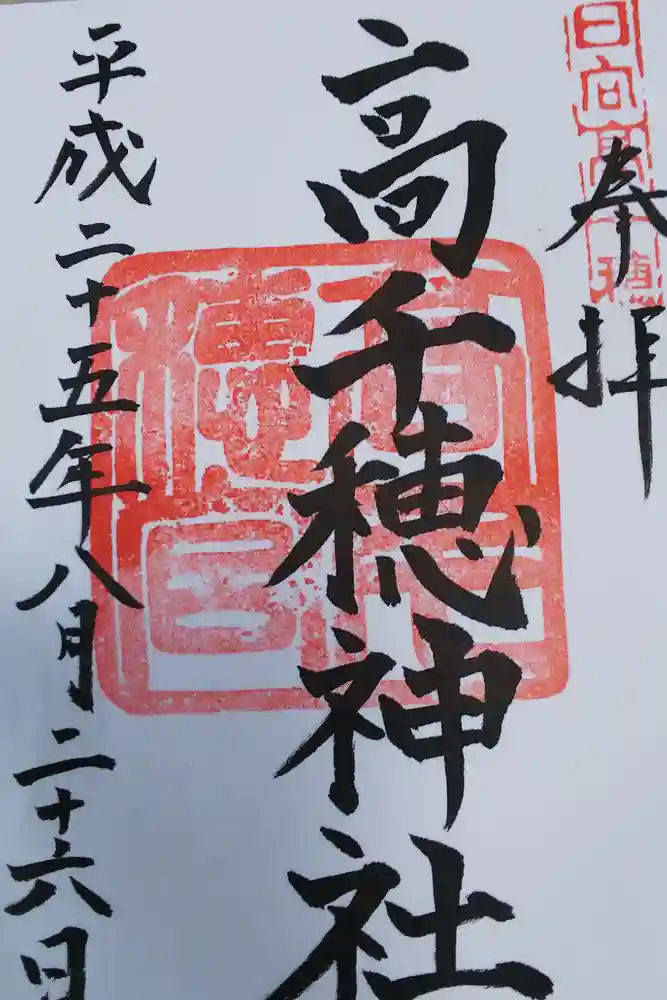 日向高千穂
奉拝
高千穂神社
平成二十五年八月二十六日